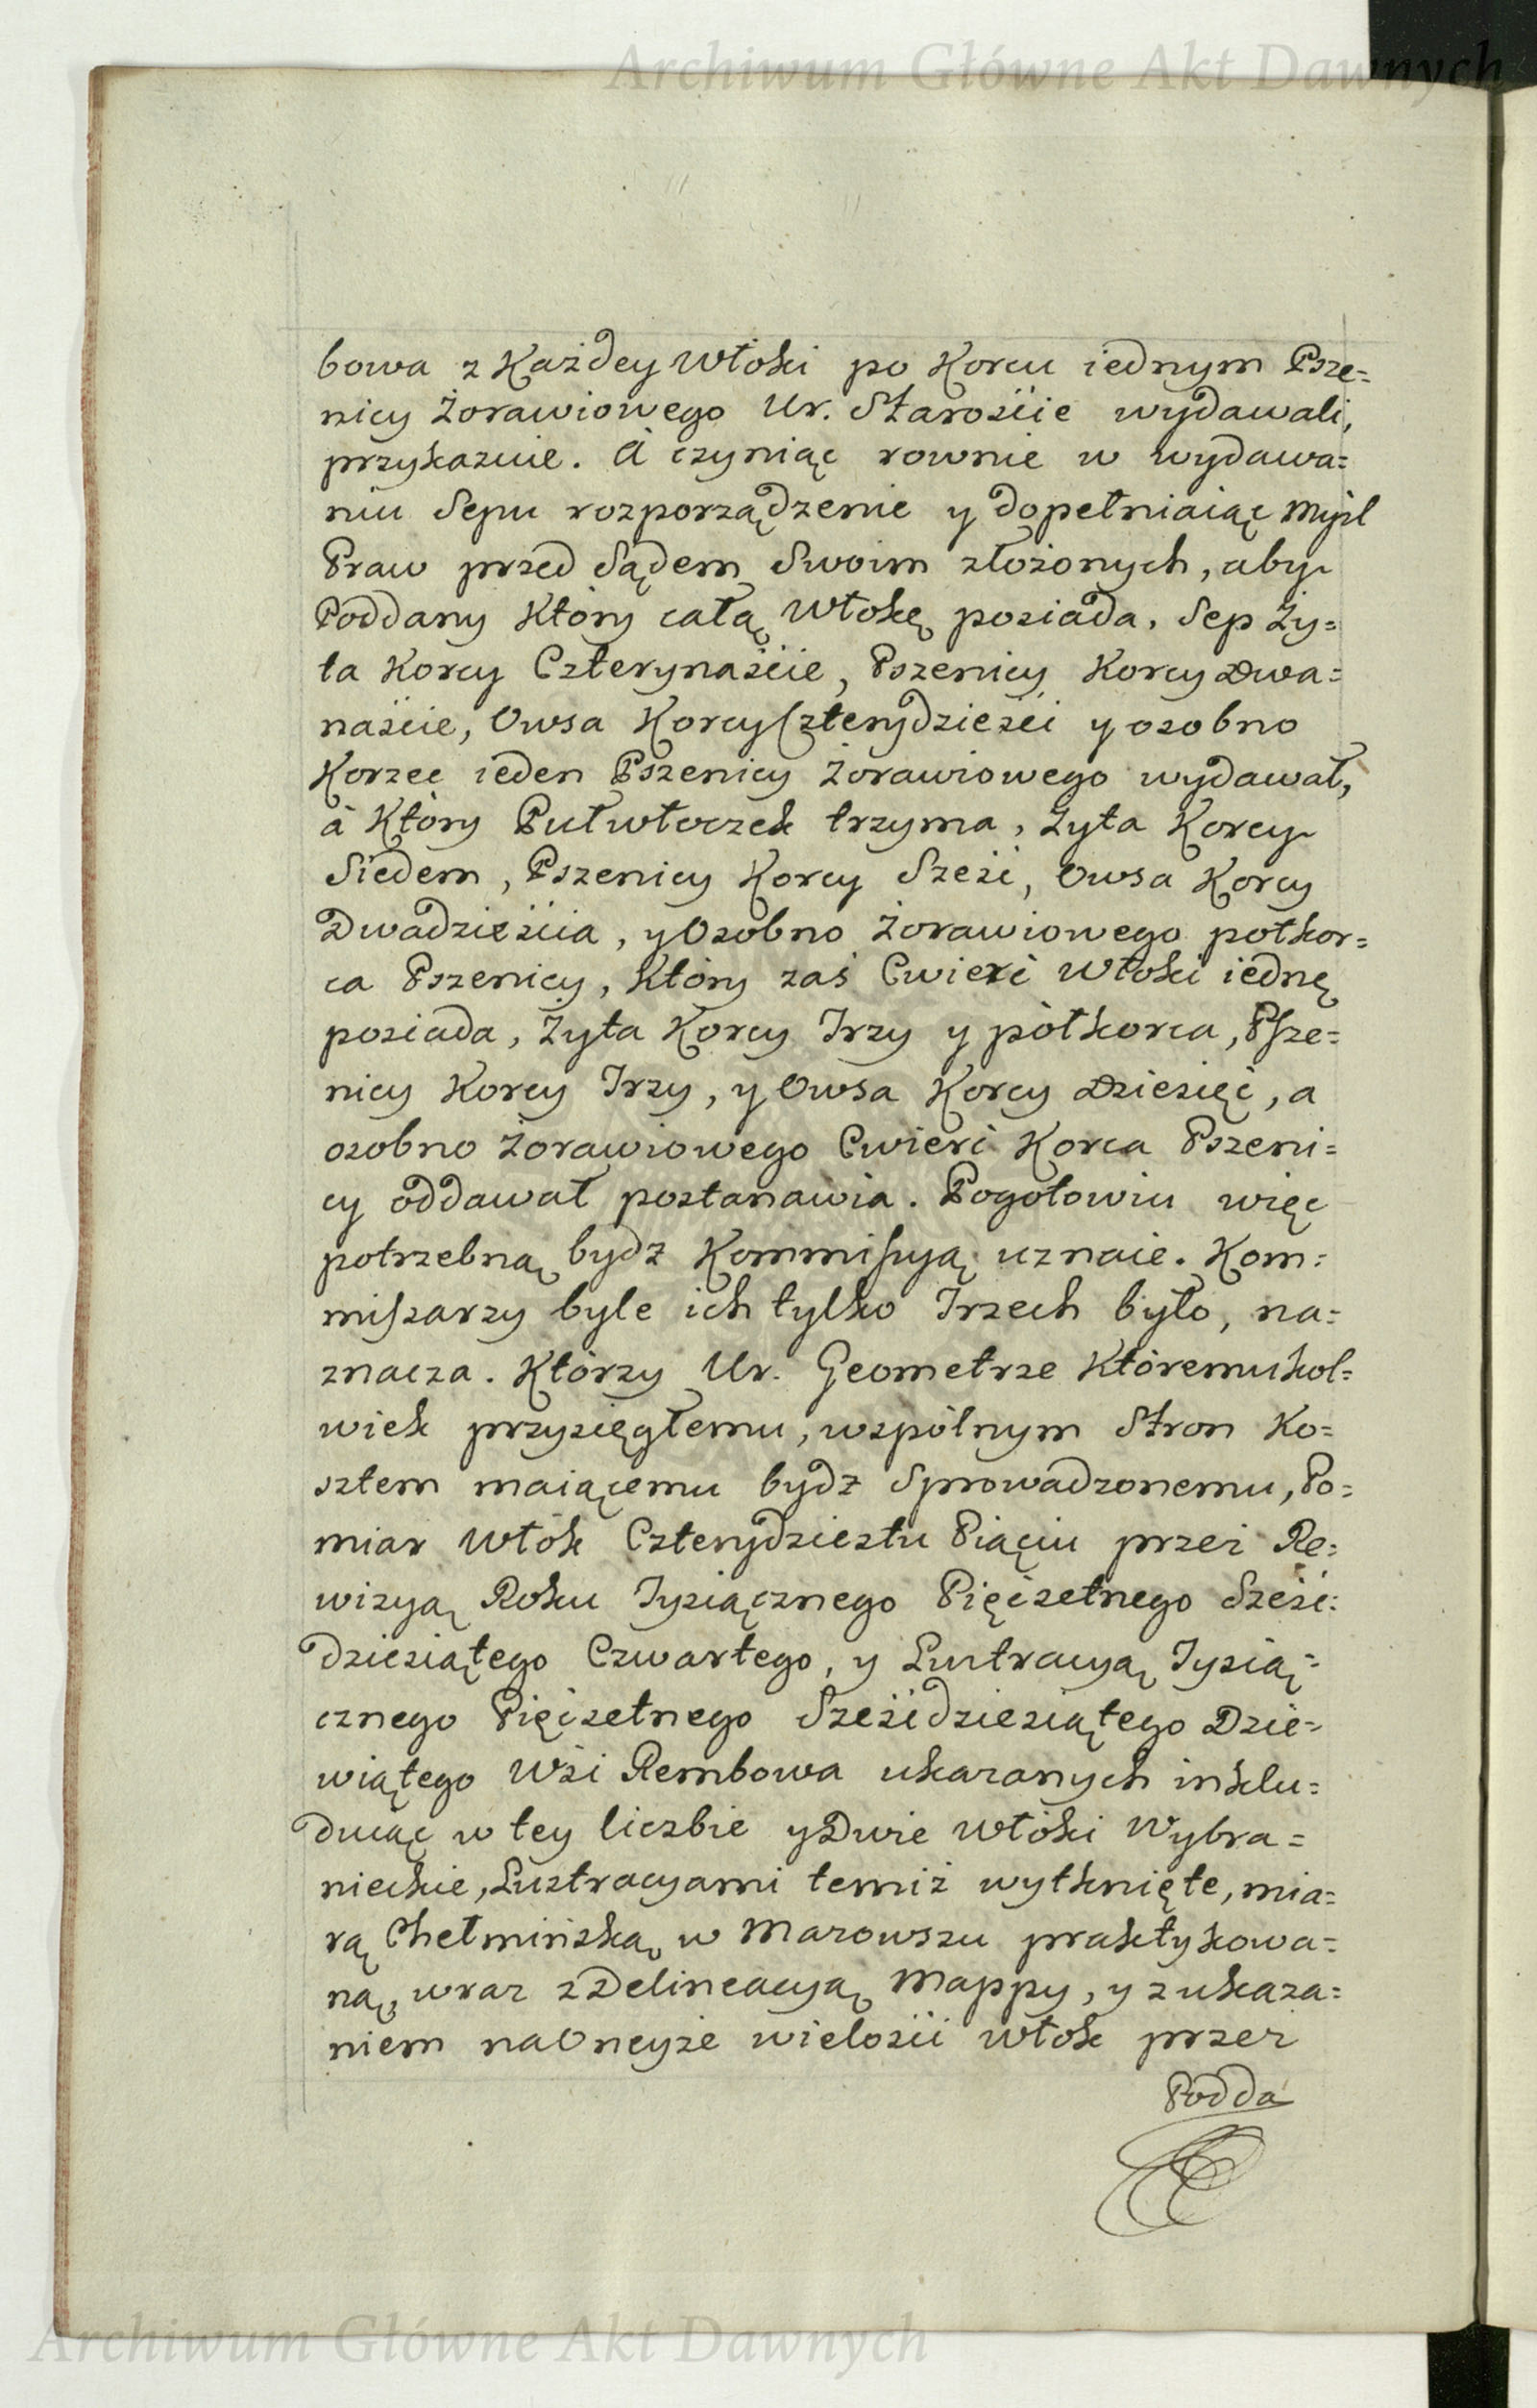 Archiwum Główne Akt Dawnych
bowa z Każdey Włoki po Korcu iednym Psze=
nicy Żorawiowego Ur. Starościie wydawali,
przykazuie. A czyniąc rownie w wydawa=
niu Sepu rozporządzenie y dopełniaiąc Myśl
Praw przed Sądem Swoim złożonych, aby
Poddany Który całą Włokę posiada, Sep Ży=
ta Korcy Czterynaście, Pszenicy Korcy Dwa=
naście, Owsa Korcy Czterydzieści y osobno
Korzec ieden Pszenicy Żorawiowego wydawał,
à Który Pułwłoczek trzyma, Żyta Korcy
Siedem, Pszenicy Korcy Sześć, Owsa Korcy
Dwadzieścia, y Osobno Żorawiowego połkor=
ca Pszenicy, Który zaś Cwierć Włoki iednę
posiada, Żyta Korcy Trzy y półkorca, Psze=
nicy Korcy Trzy, y Owsa Korcy Dziesięć, a
osobno Żorawiowego Cwierć Korca Pszeni=
cy oddawał postanawia. Pogotowiu więc
potrzebną bydz Kommissyą uznaie. Kom=
missarzy byle ich tylko Trzech było, na=
znacza. Którzy Ur. Geometrze Któremukol=
wiek przysięgłemu, wspólnym Stron Ko=
sztem maiącemu bydz Sprowadzonemu, Po=
miar Włók Czterydziestu Piąciu przez Re=
wizyą Roku Tysiącznego Pięćsetnego Sześć=
dziesiątego Czwartego, y Lustracyą Tysią=
cznego Pięćsetnego Sześćdziesiątego Dzie=
wiątego Wsi Rembowa ukazanych inklu=
duiąc w tey liczbie y Dwie Włóki Wybra=
nieckie, Lustracyami temiż wytknięte, mia=
rą Chełmińską w Mazowszu praktykowa=
ną, wraz z Delineacyą Mappy, y z ukaza=
niem na Oneyże wielości włok przez
Podda
Archiwum Główne Akt Dawnych